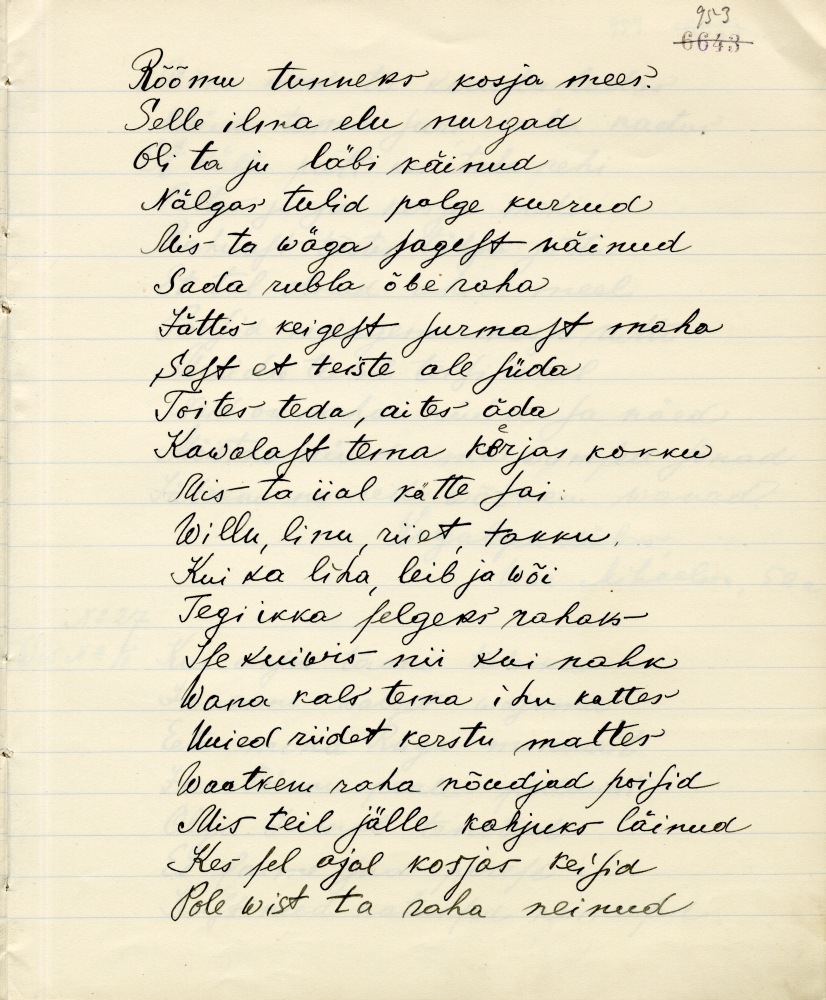 953
6643
Röömu tunneks kosja mees.
Selle ilma elu nurgad
Oli ta ju läbi käinud
Nälgas tulid palge kurrud
Mis ta wäga sagest näinud
Sada rubla õbe raha
Jättis keigest surmast maha
Sest et teiste ale süda
Toites teda, aites äda
Kawalast tema körjas kokku
Mis ta iial kätte sai.
Willu, linu, riiet, takku.
Kui ka liha, leib ja wõi
Tegi ikka selgeks rahaks
Ise kuiwis nii kui nahk
Wana kals tema ihu kattes
Uuied riidet kerstu mattes
Waatkem raha nõudjad poisid
Mis teil jälle kahjuks läinud
Kes sel ajal kosjas keisid
Pole wist ta raha neinud